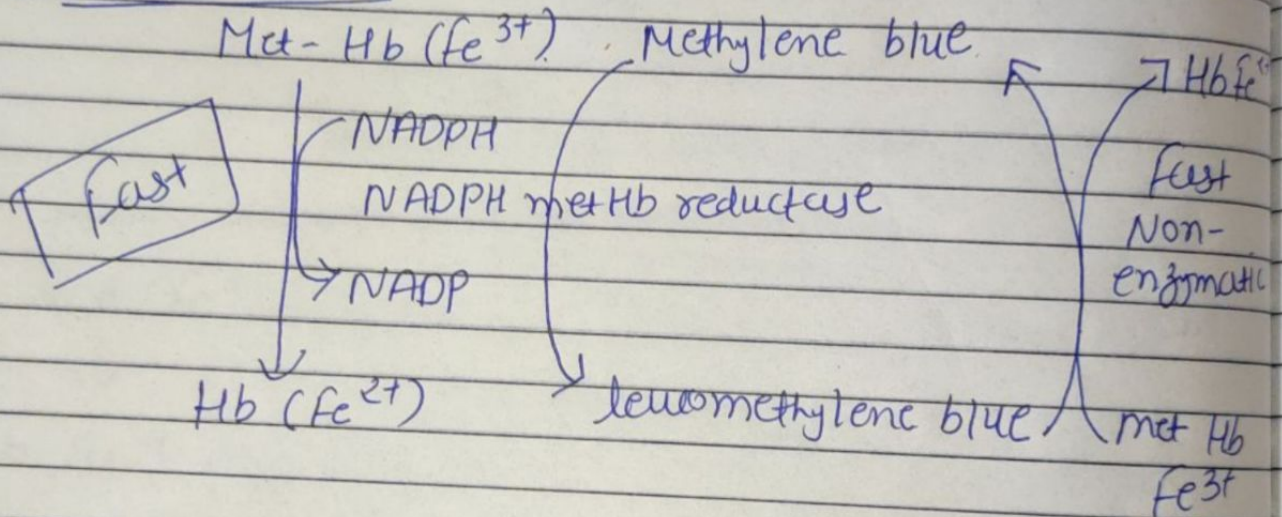 Met - Hb (fe3+). Methylene blue
Hb fe
NADPH
fast
fast
NADPH metHb reductase
Non-
enzymatic
NADP
Hb (fe2+)
leucomethylene blue
met Hb
fe3+